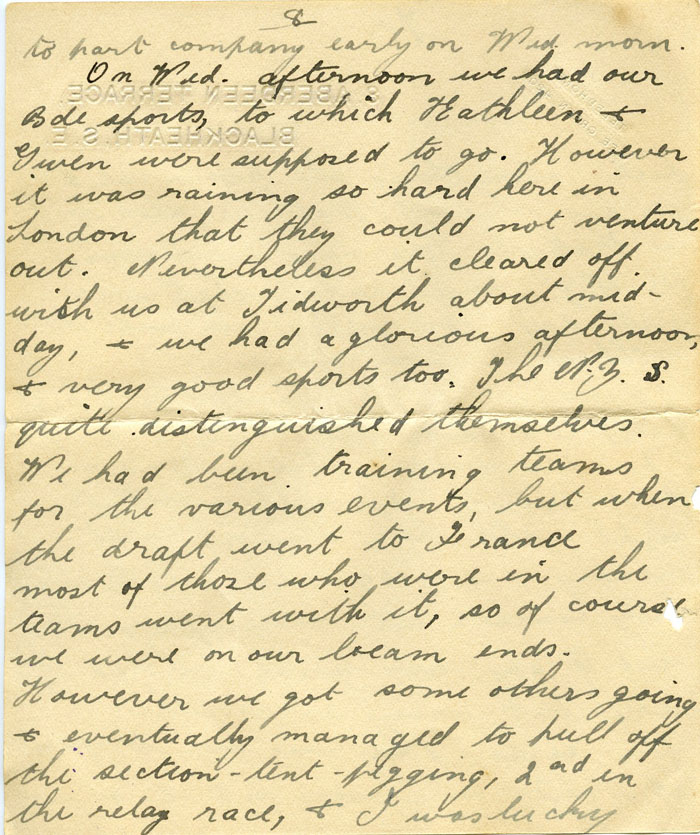 8
to part company early on Wed morn.
On Wed. afternoon we had our
Bde sports, to which Kathleen &
Gwen were supposed to go. However
it was raining so hard here in
London that they could not venture
out. Nevertheless it cleared off
with us at Tidworth about mid-
day, & we had a glorious afternoon,
& very good sports too. The N.Z. S.
quite distinguished themselves.
We had been training teams
for the various events, but when
the draft went to France
most of those who were in the
teams went with it, so of course
we were on our beam ends.
However we got some others going
& eventually managed to pull off
the section-tent-pegging, 2nd in
the relay race, & I was lucky
ABERDEEN TERRACE.
BLACKHEATH. S.E.